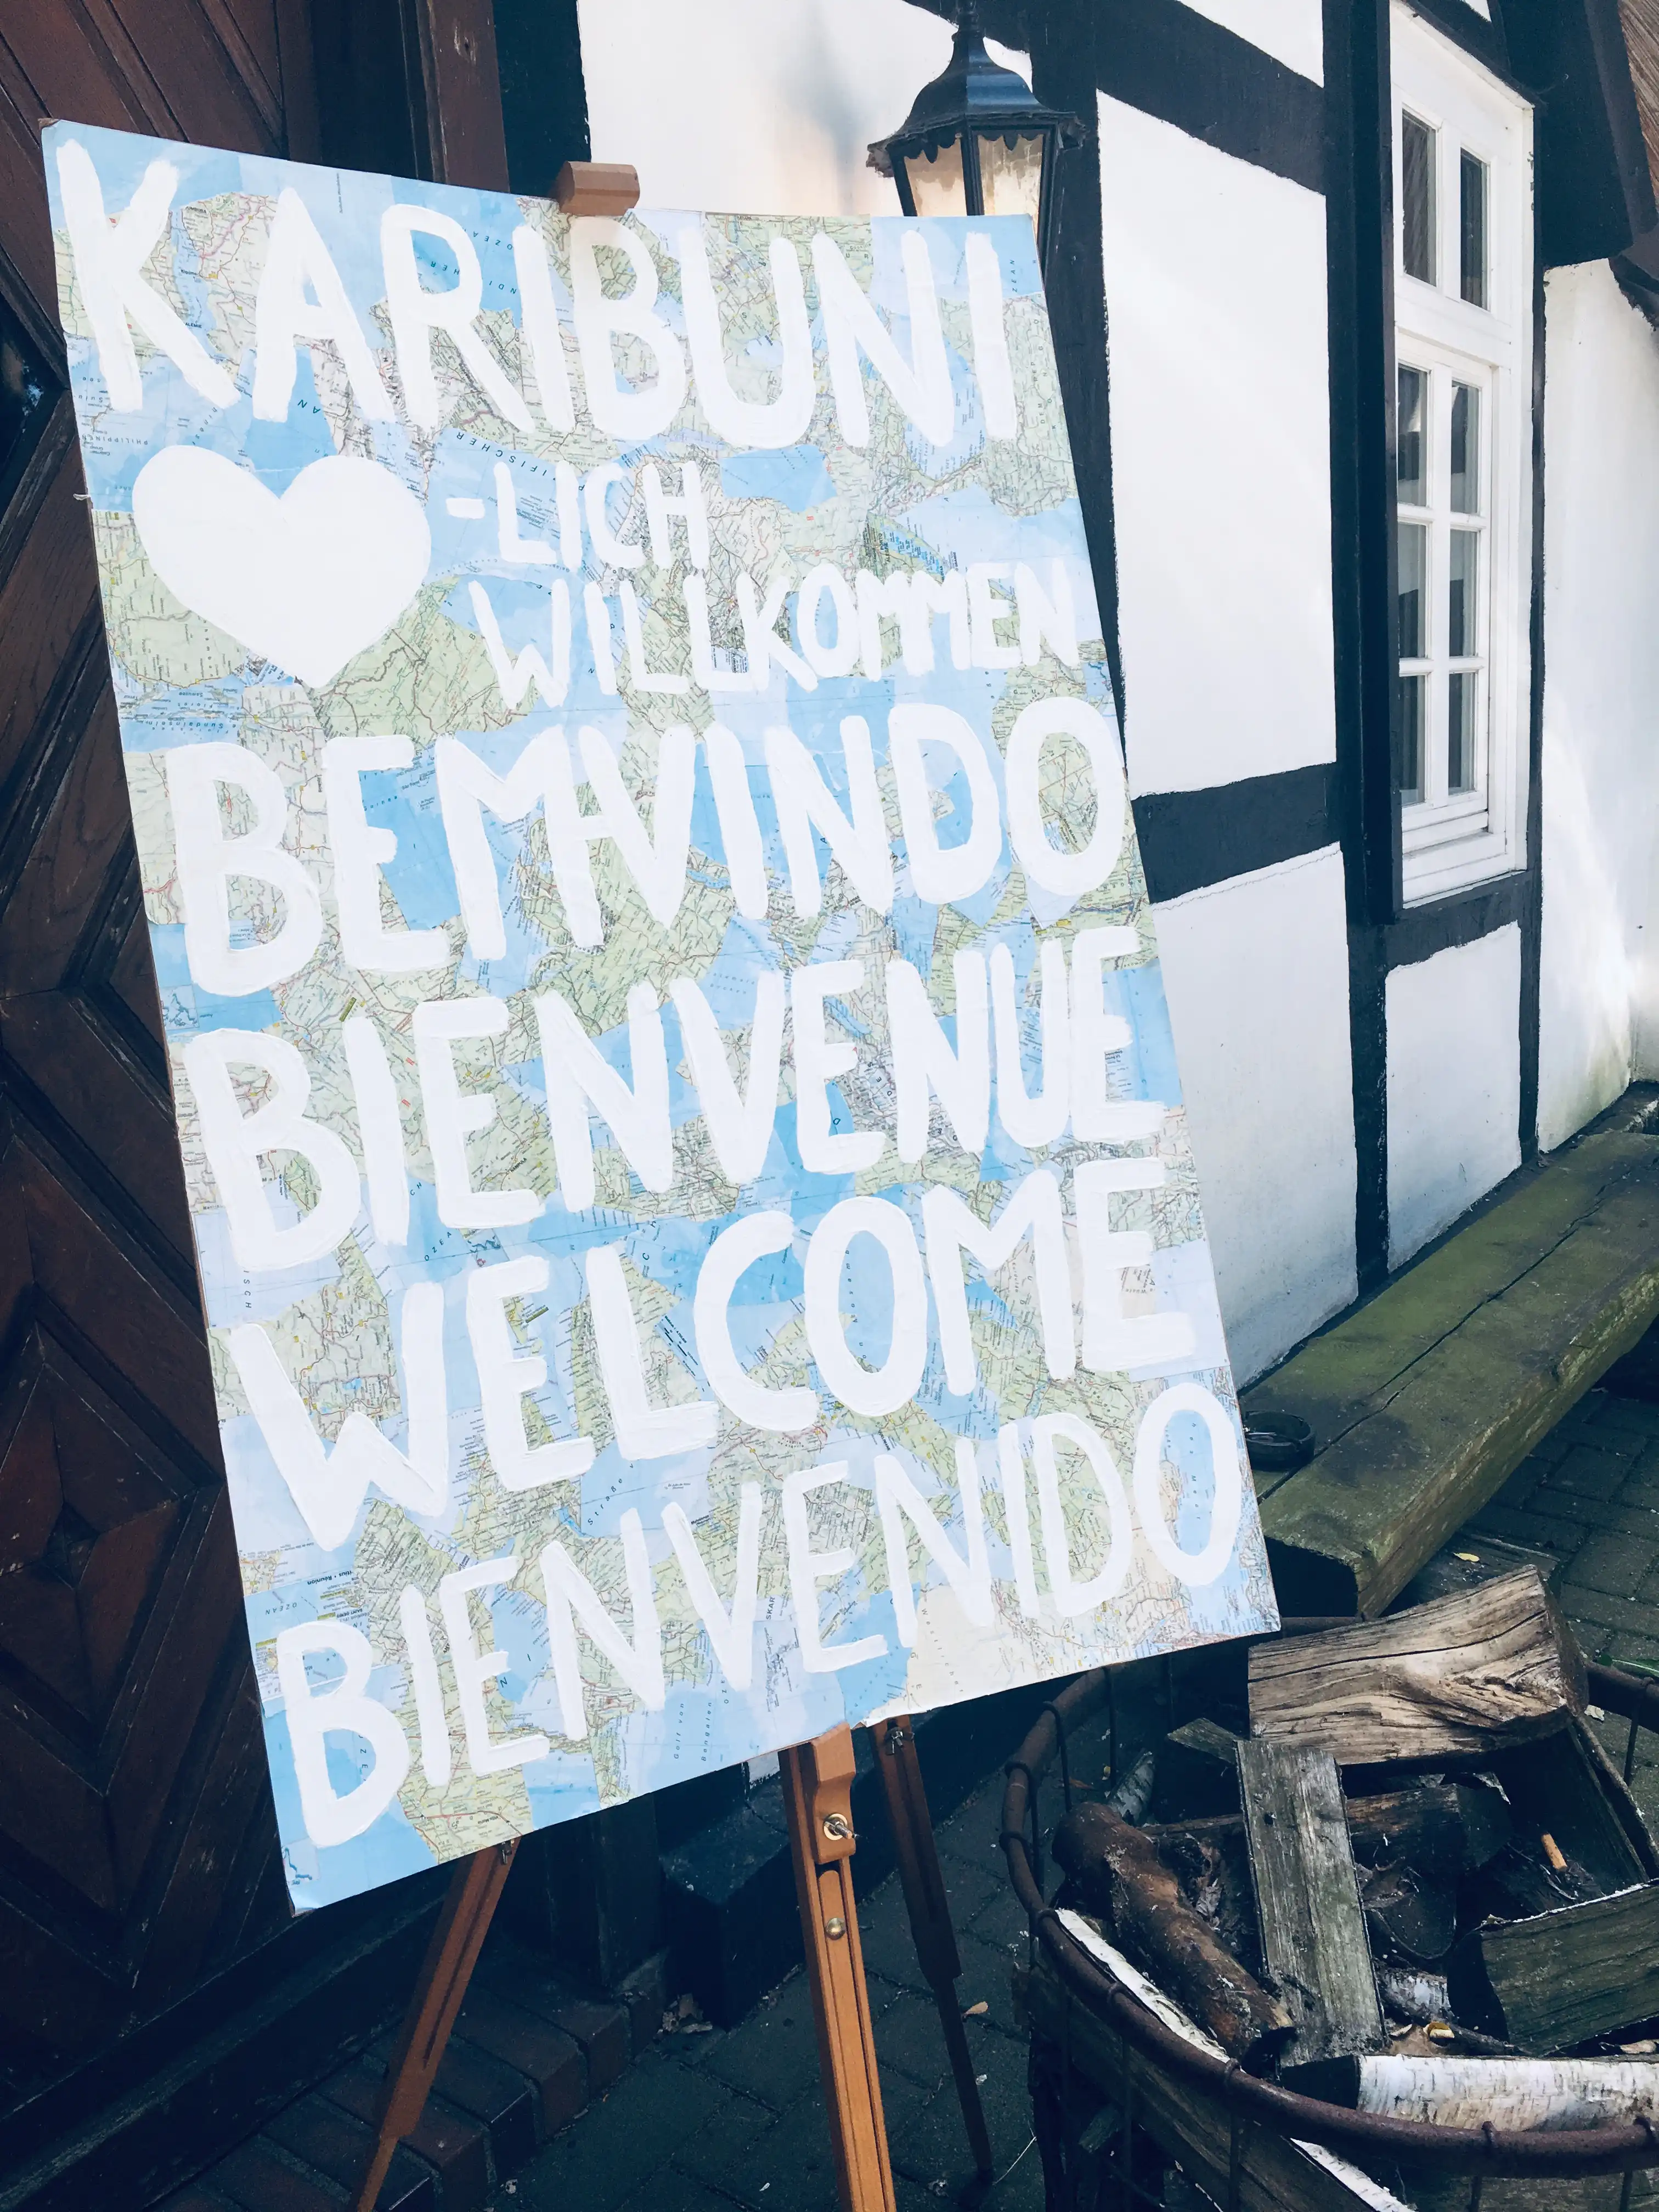 KARIBUNI
♥-LICH
WILLKOMMEN
BEMVINDO
BIENVENUE
WELCOME
BIENVENIDO